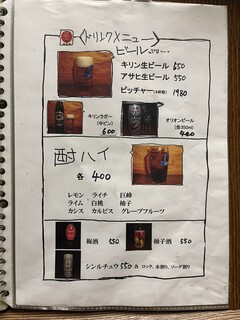 〈ドリンクメニュー〉
ビール
キリン生ビール 550
アサヒ生ビール 550
ピッチャー(4杯相) 1980
キリンラガー
(中ビン)
600
オリオンビール
(缶350ml)
440
酎ハイ
各 400
レモン ライチ 巨峰
ライム 白桃 柚子
カシス カルピス グレープフルーツ
梅酒 550
柚子酒 550
シンルチュウ 550 各 ロック、水割り、ソーダ割り